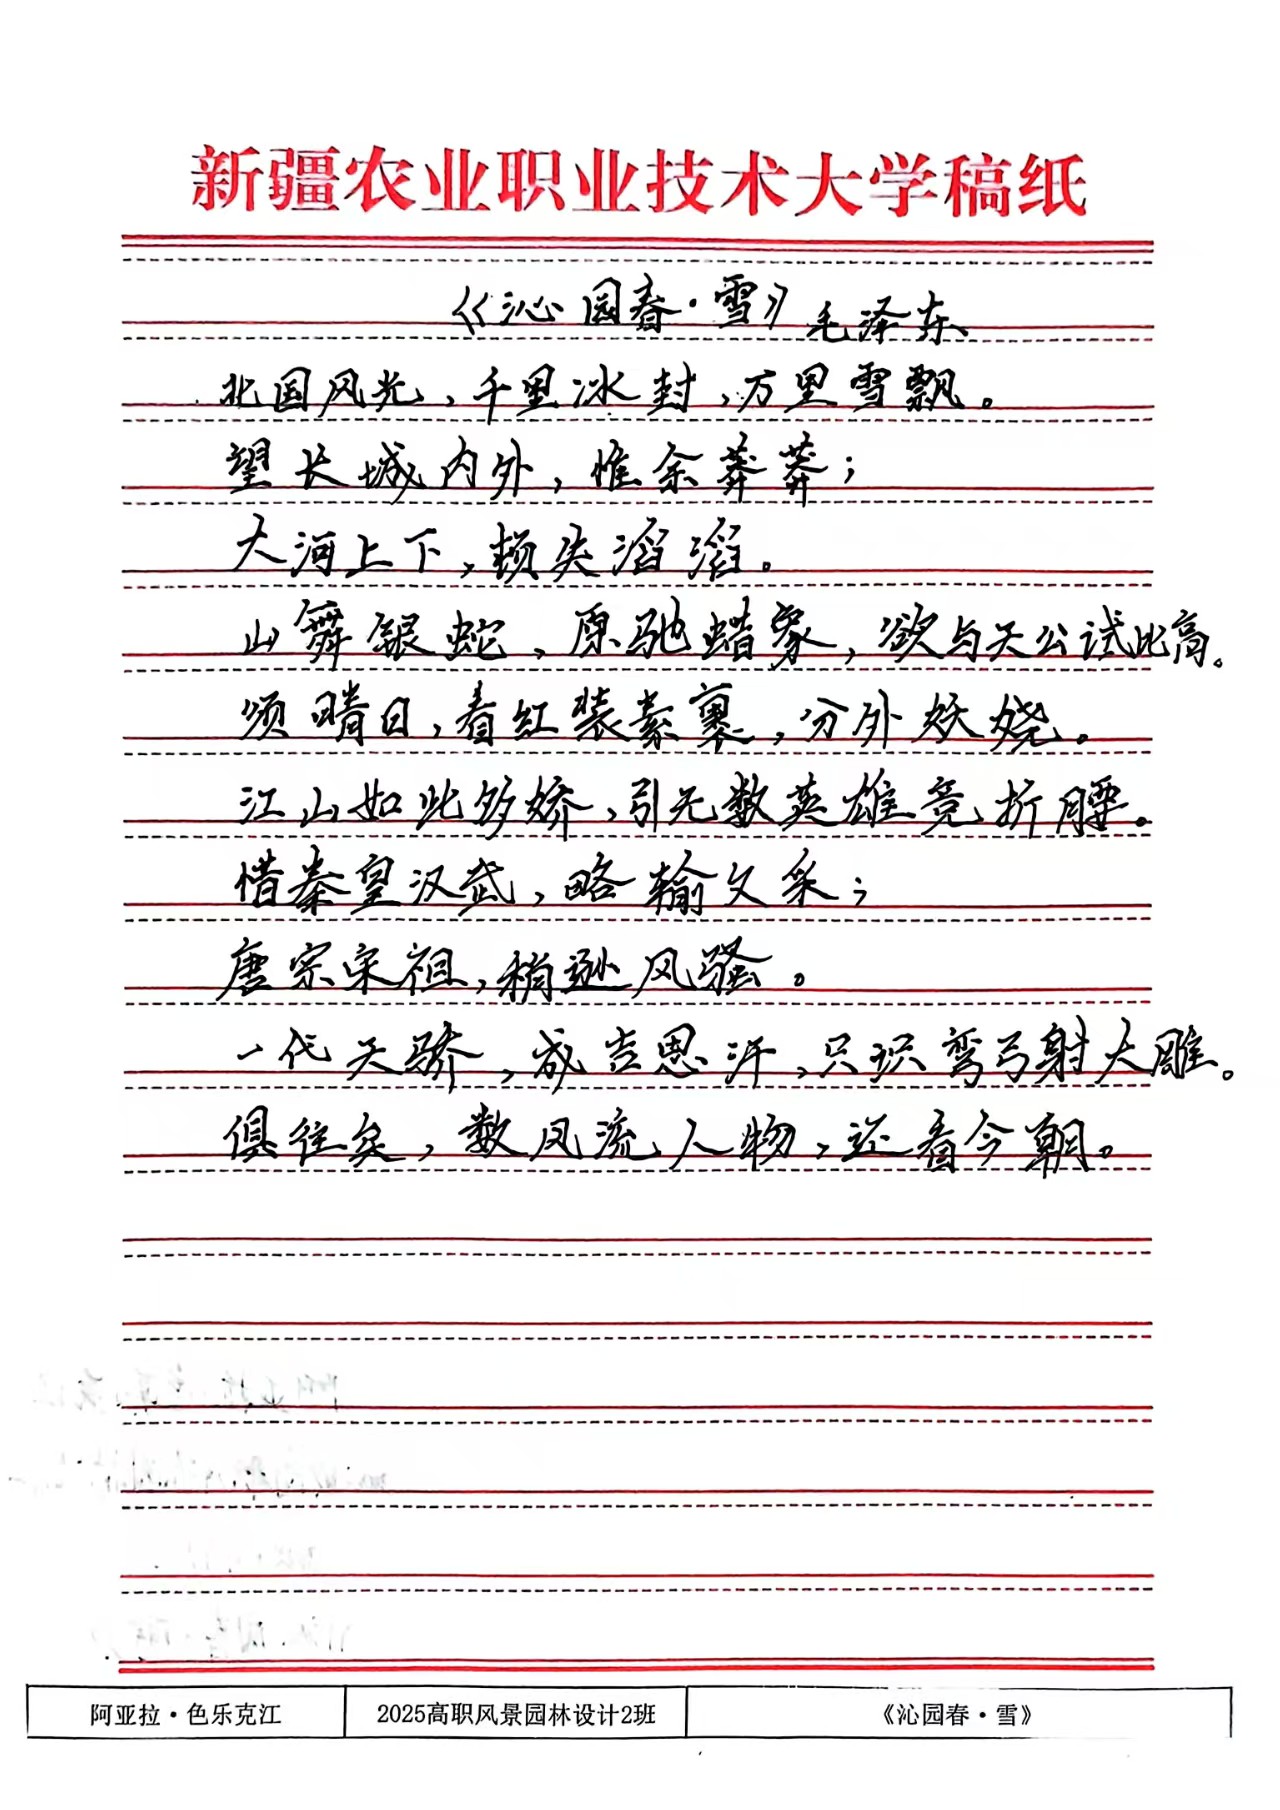 新疆农业职业技术大学稿纸
《沁园春·雪》毛泽东
北国风光，千里冰封，万里雪飘。
望长城内外，惟余莽莽；
大河上下，顿失滔滔。
山舞银蛇，原驰蜡象，欲与天公试比高。
须晴日，看红装素裹，分外妖娆。
江山如此多娇，引无数英雄竞折腰。
惜秦皇汉武，略输文采；
唐宗宋祖，稍逊风骚。
一代天骄，成吉思汗，只识弯弓射大雕。
俱往矣，数风流人物，还看今朝。
阿亚拉·色乐克江 2025高职风景园林设计2班 《沁园春·雪》